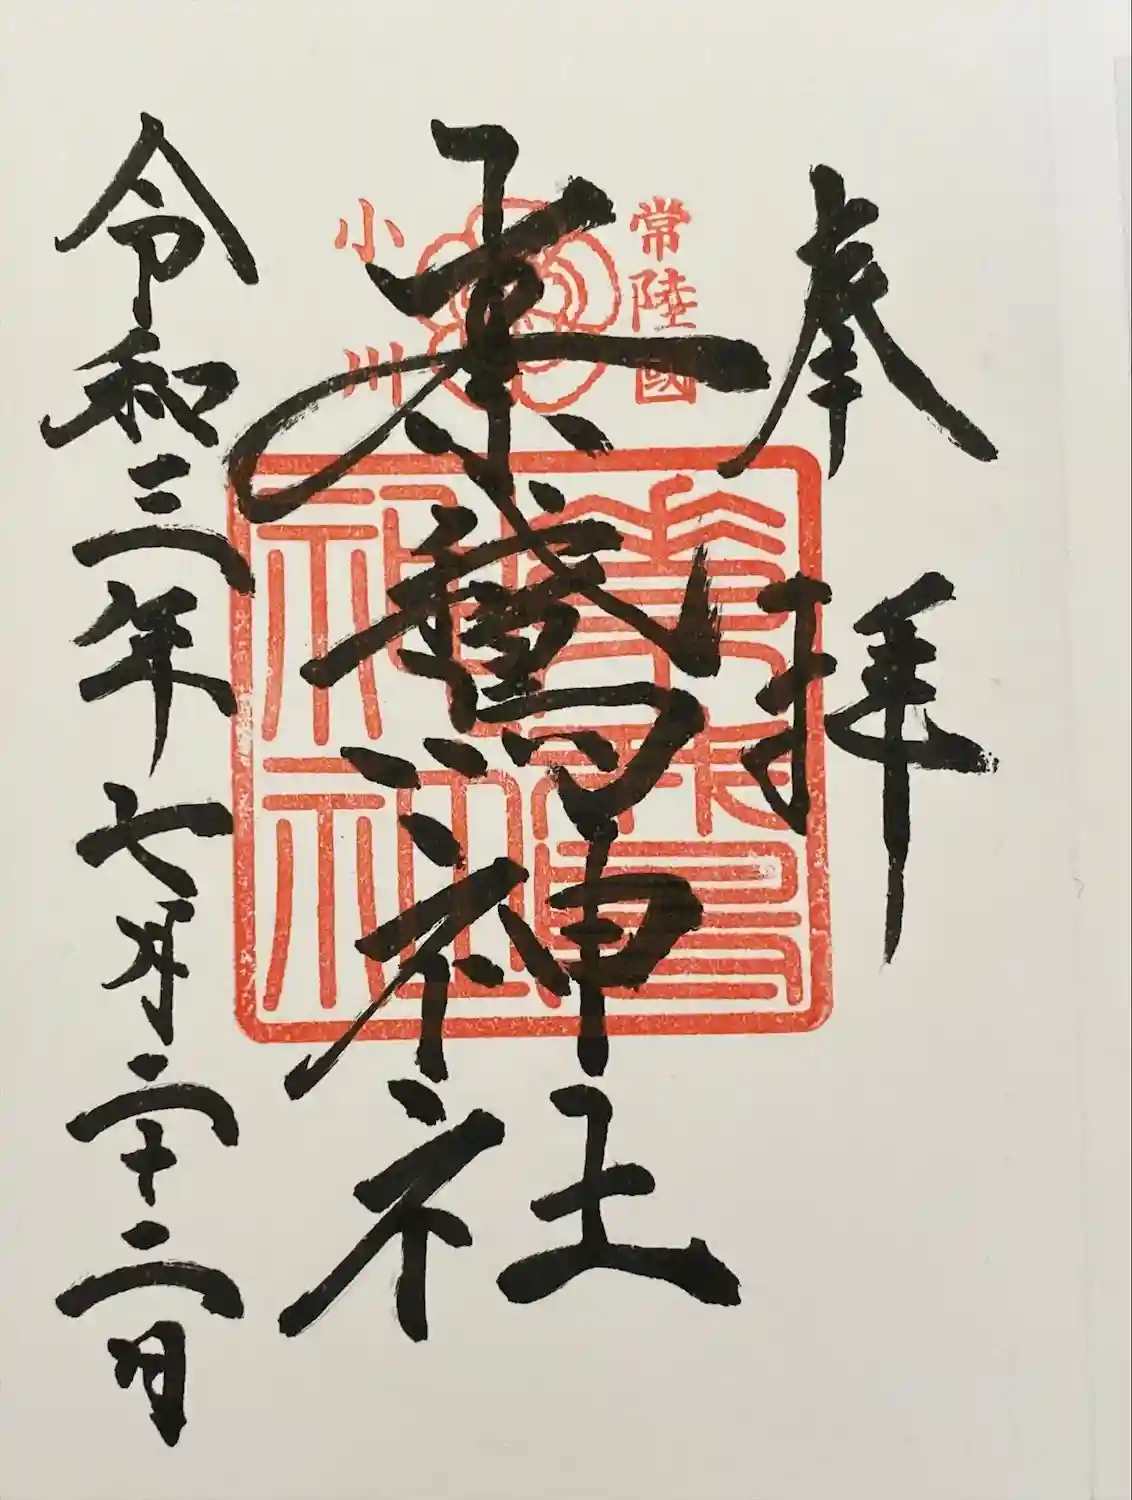 奉拝
常陸國
素鵞神社
小川
素鵞
神社
令和三年七月二十二日